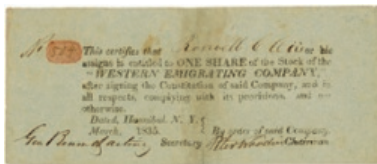 No 584 This certifies that or his
assigns is entitled to ONE SHARE of the Stock of the
"WESTERN EMIGRATING COMPANY,"
after signing the Constitution of said Company, and in
all respects, complying with its provisions, and not
otherwise.
Dated, Hannibal, N. Y.
March, 1835. } By order of said Company,
Secretary Chairman